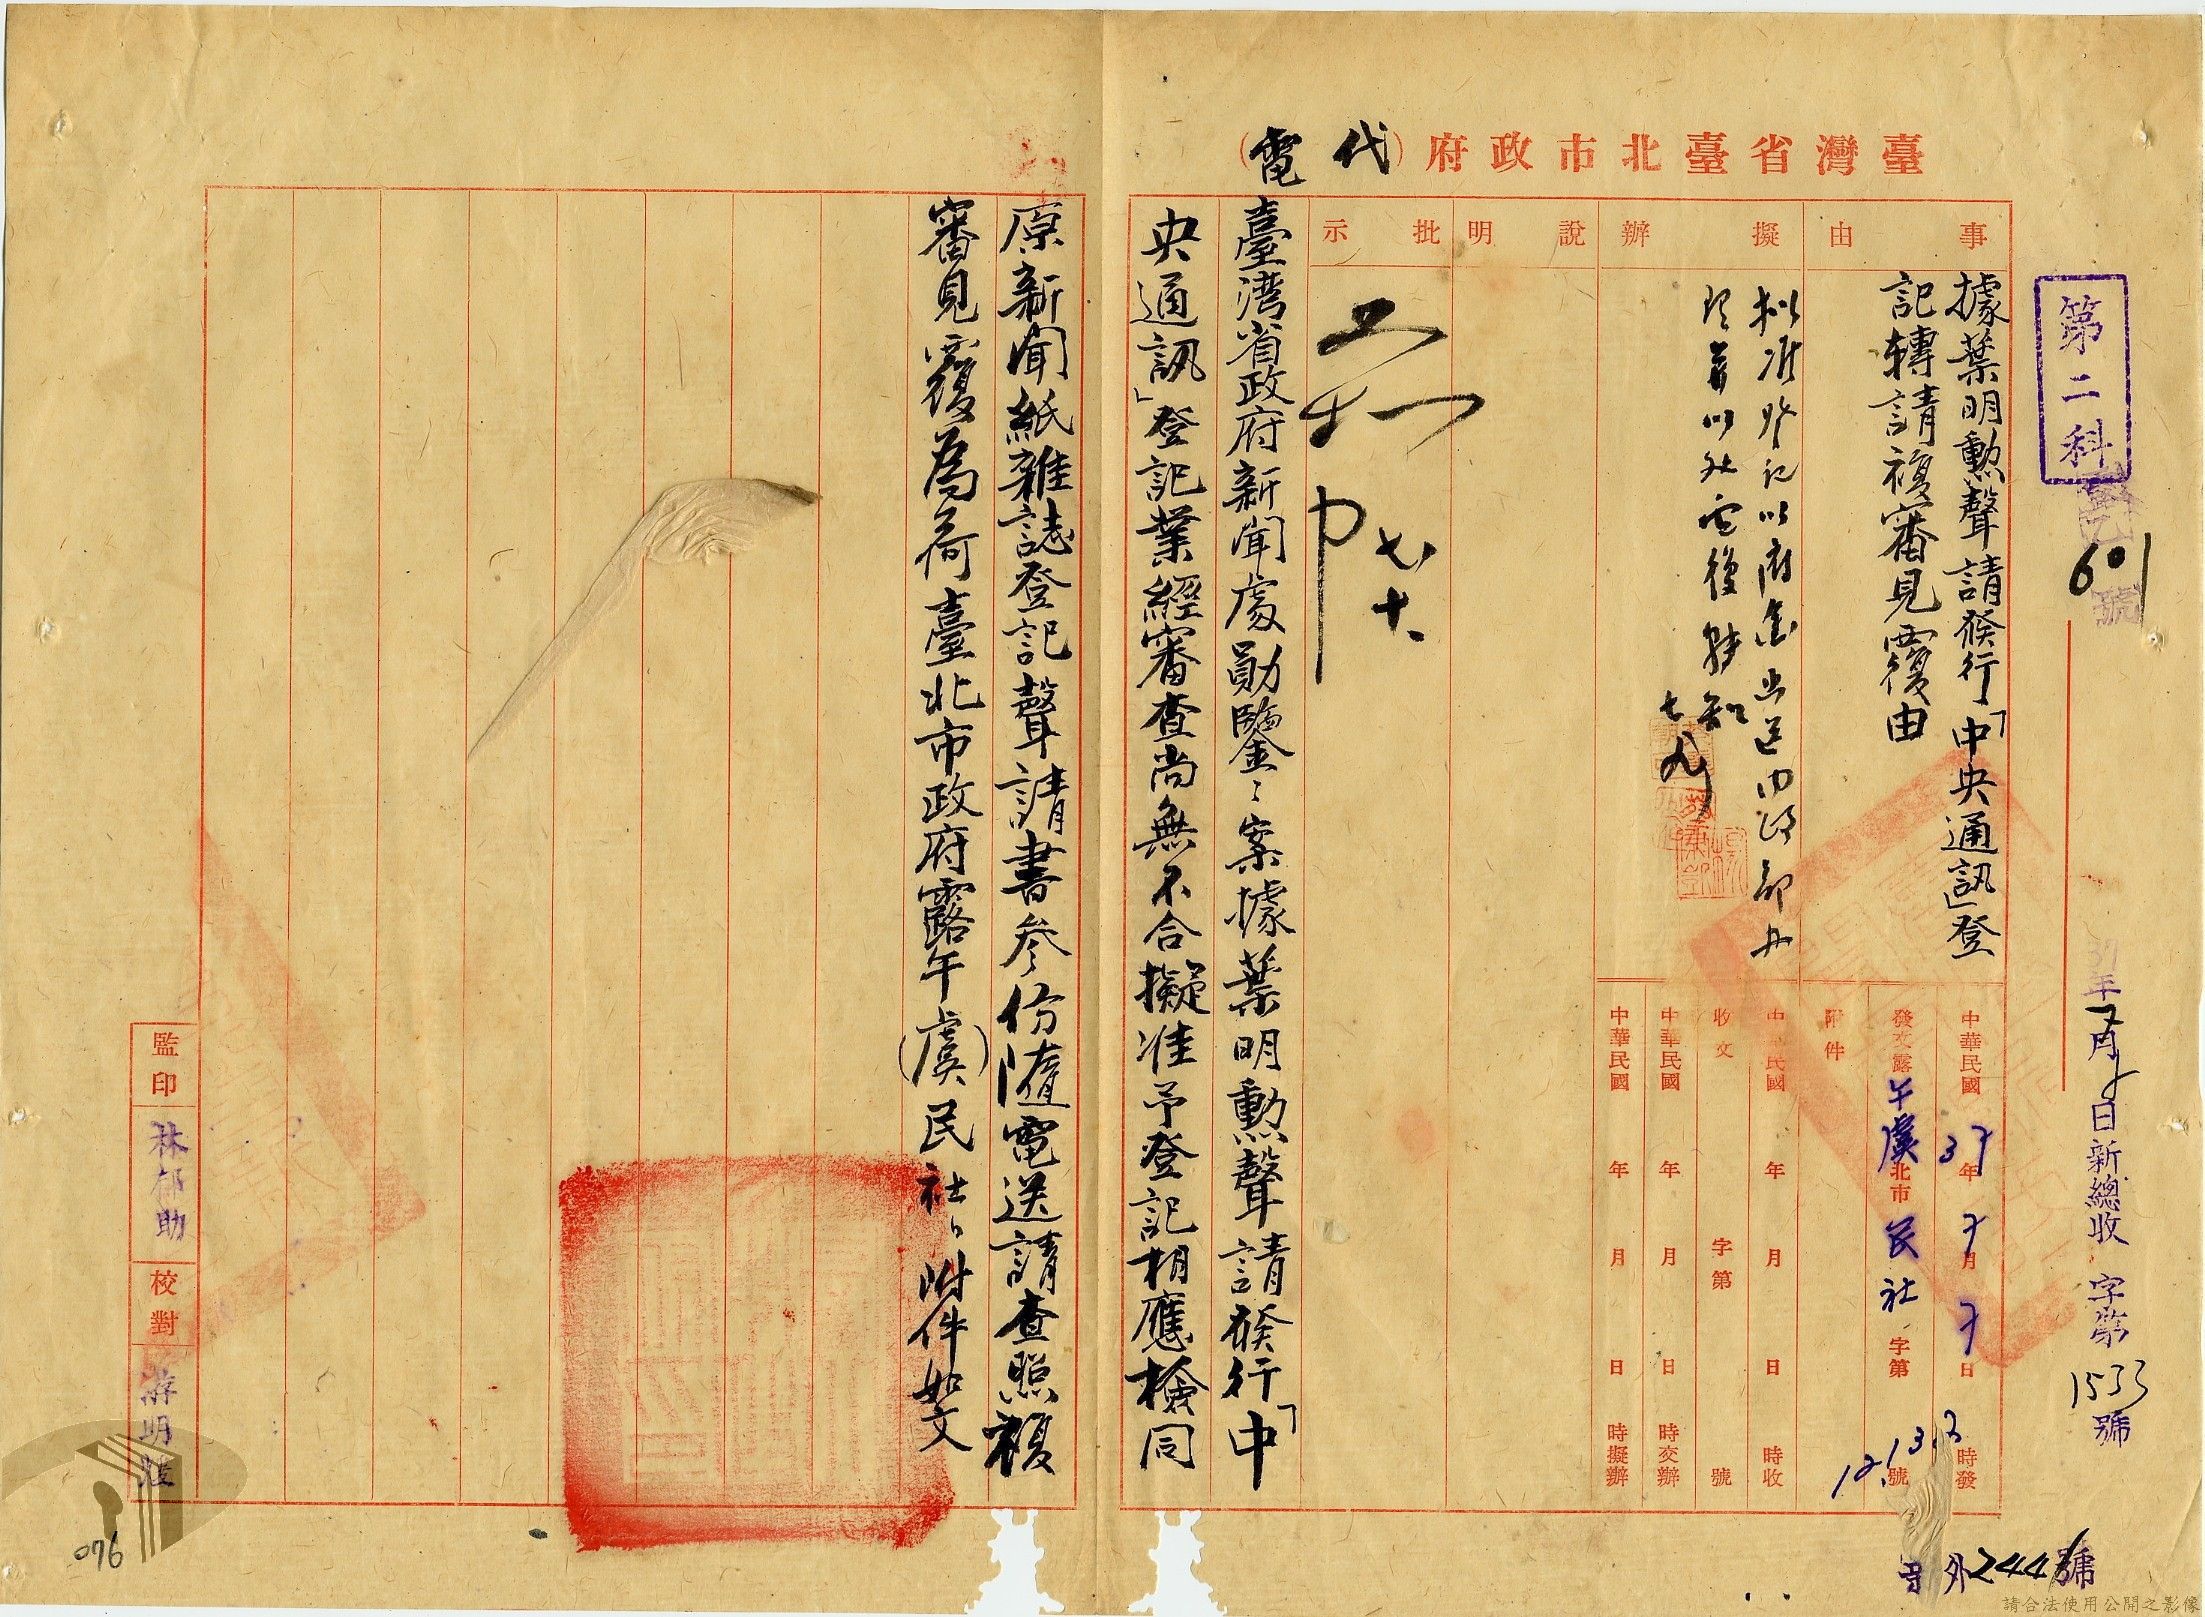 臺灣省臺北市政府(代電)
第二科
601號
37年7月 日新總收 字第1533號
事由
據葉明勲聲請發行「中央通訊」登
記轉請複審見覆由
擬辦
說明
批示
中華民國37年7月7日 時發
發文露午虞北市民社字第 號
附件
中華民國 年 月 日 時收
收文 字第 號
中華民國 年 月 日 時交辦
中華民國 年 月 日 時擬辦
七
七十
臺湾省政府新聞處勛鑒:案據葉明勲聲請發行「中
央通訊」登記業經審查尚無不合擬准予登記相應檢同
原新聞紙雜誌登記聲請書叁份隨電送請查照複
審見覆為荷臺北市政府露午(虞)民社、附件如文
監印 林郁助
校對 游明
076
外2441號
請合法使用公開之影像